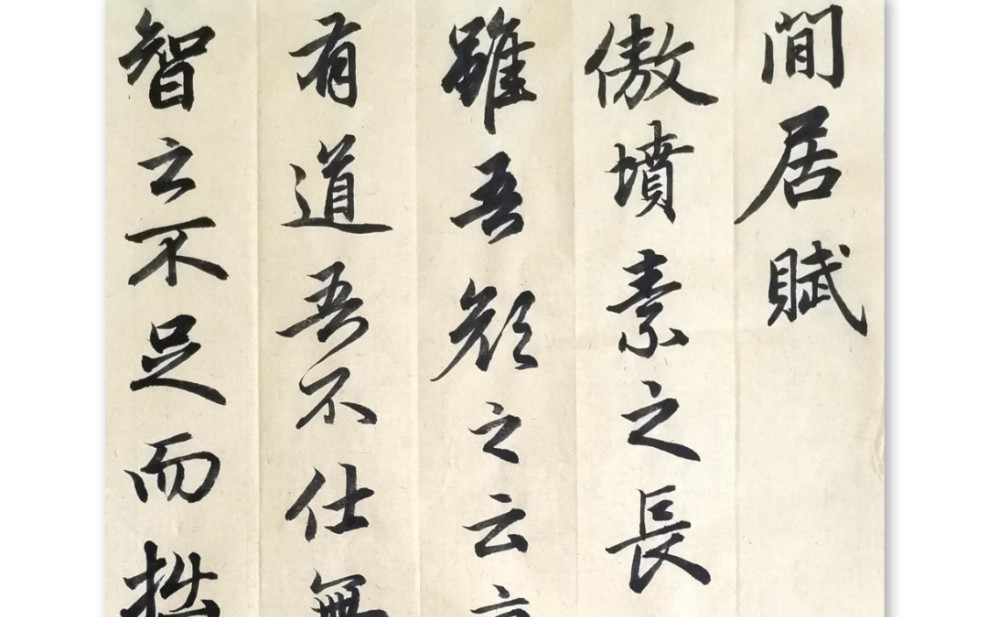 閒居賦
傲墳素之長
雖吾顏之云
有道吾不仕無
智之不足而拙